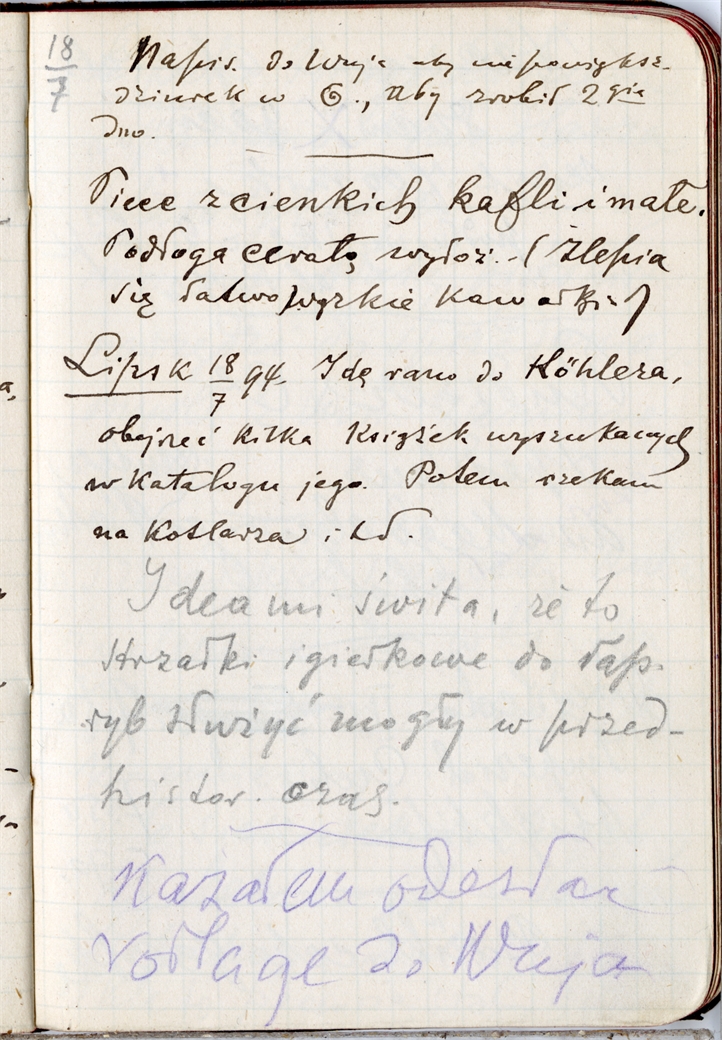 18/7 Napis. do Wuja aby nie powiększ.
dziurek w G., Aby zrobił 2gie
dno.
Piece z cienkich kafli i małe.
Podłoga ceratą wyłoż. (Zlepia
się łatwo) wązkie kawałki)
Lipsk 18/7 94. Idę rano do Köhlera,
obejrzeć kilka książek wyszukanych
w katalogu jego. Potem czekam
na Kotlarza i t.d.
Idea mi świta, że to
strzałki igiełkowe do łap.
ryb służyć mogły w przed-
histor. czas.
Kazałem odesłać
vorlage do Wuja